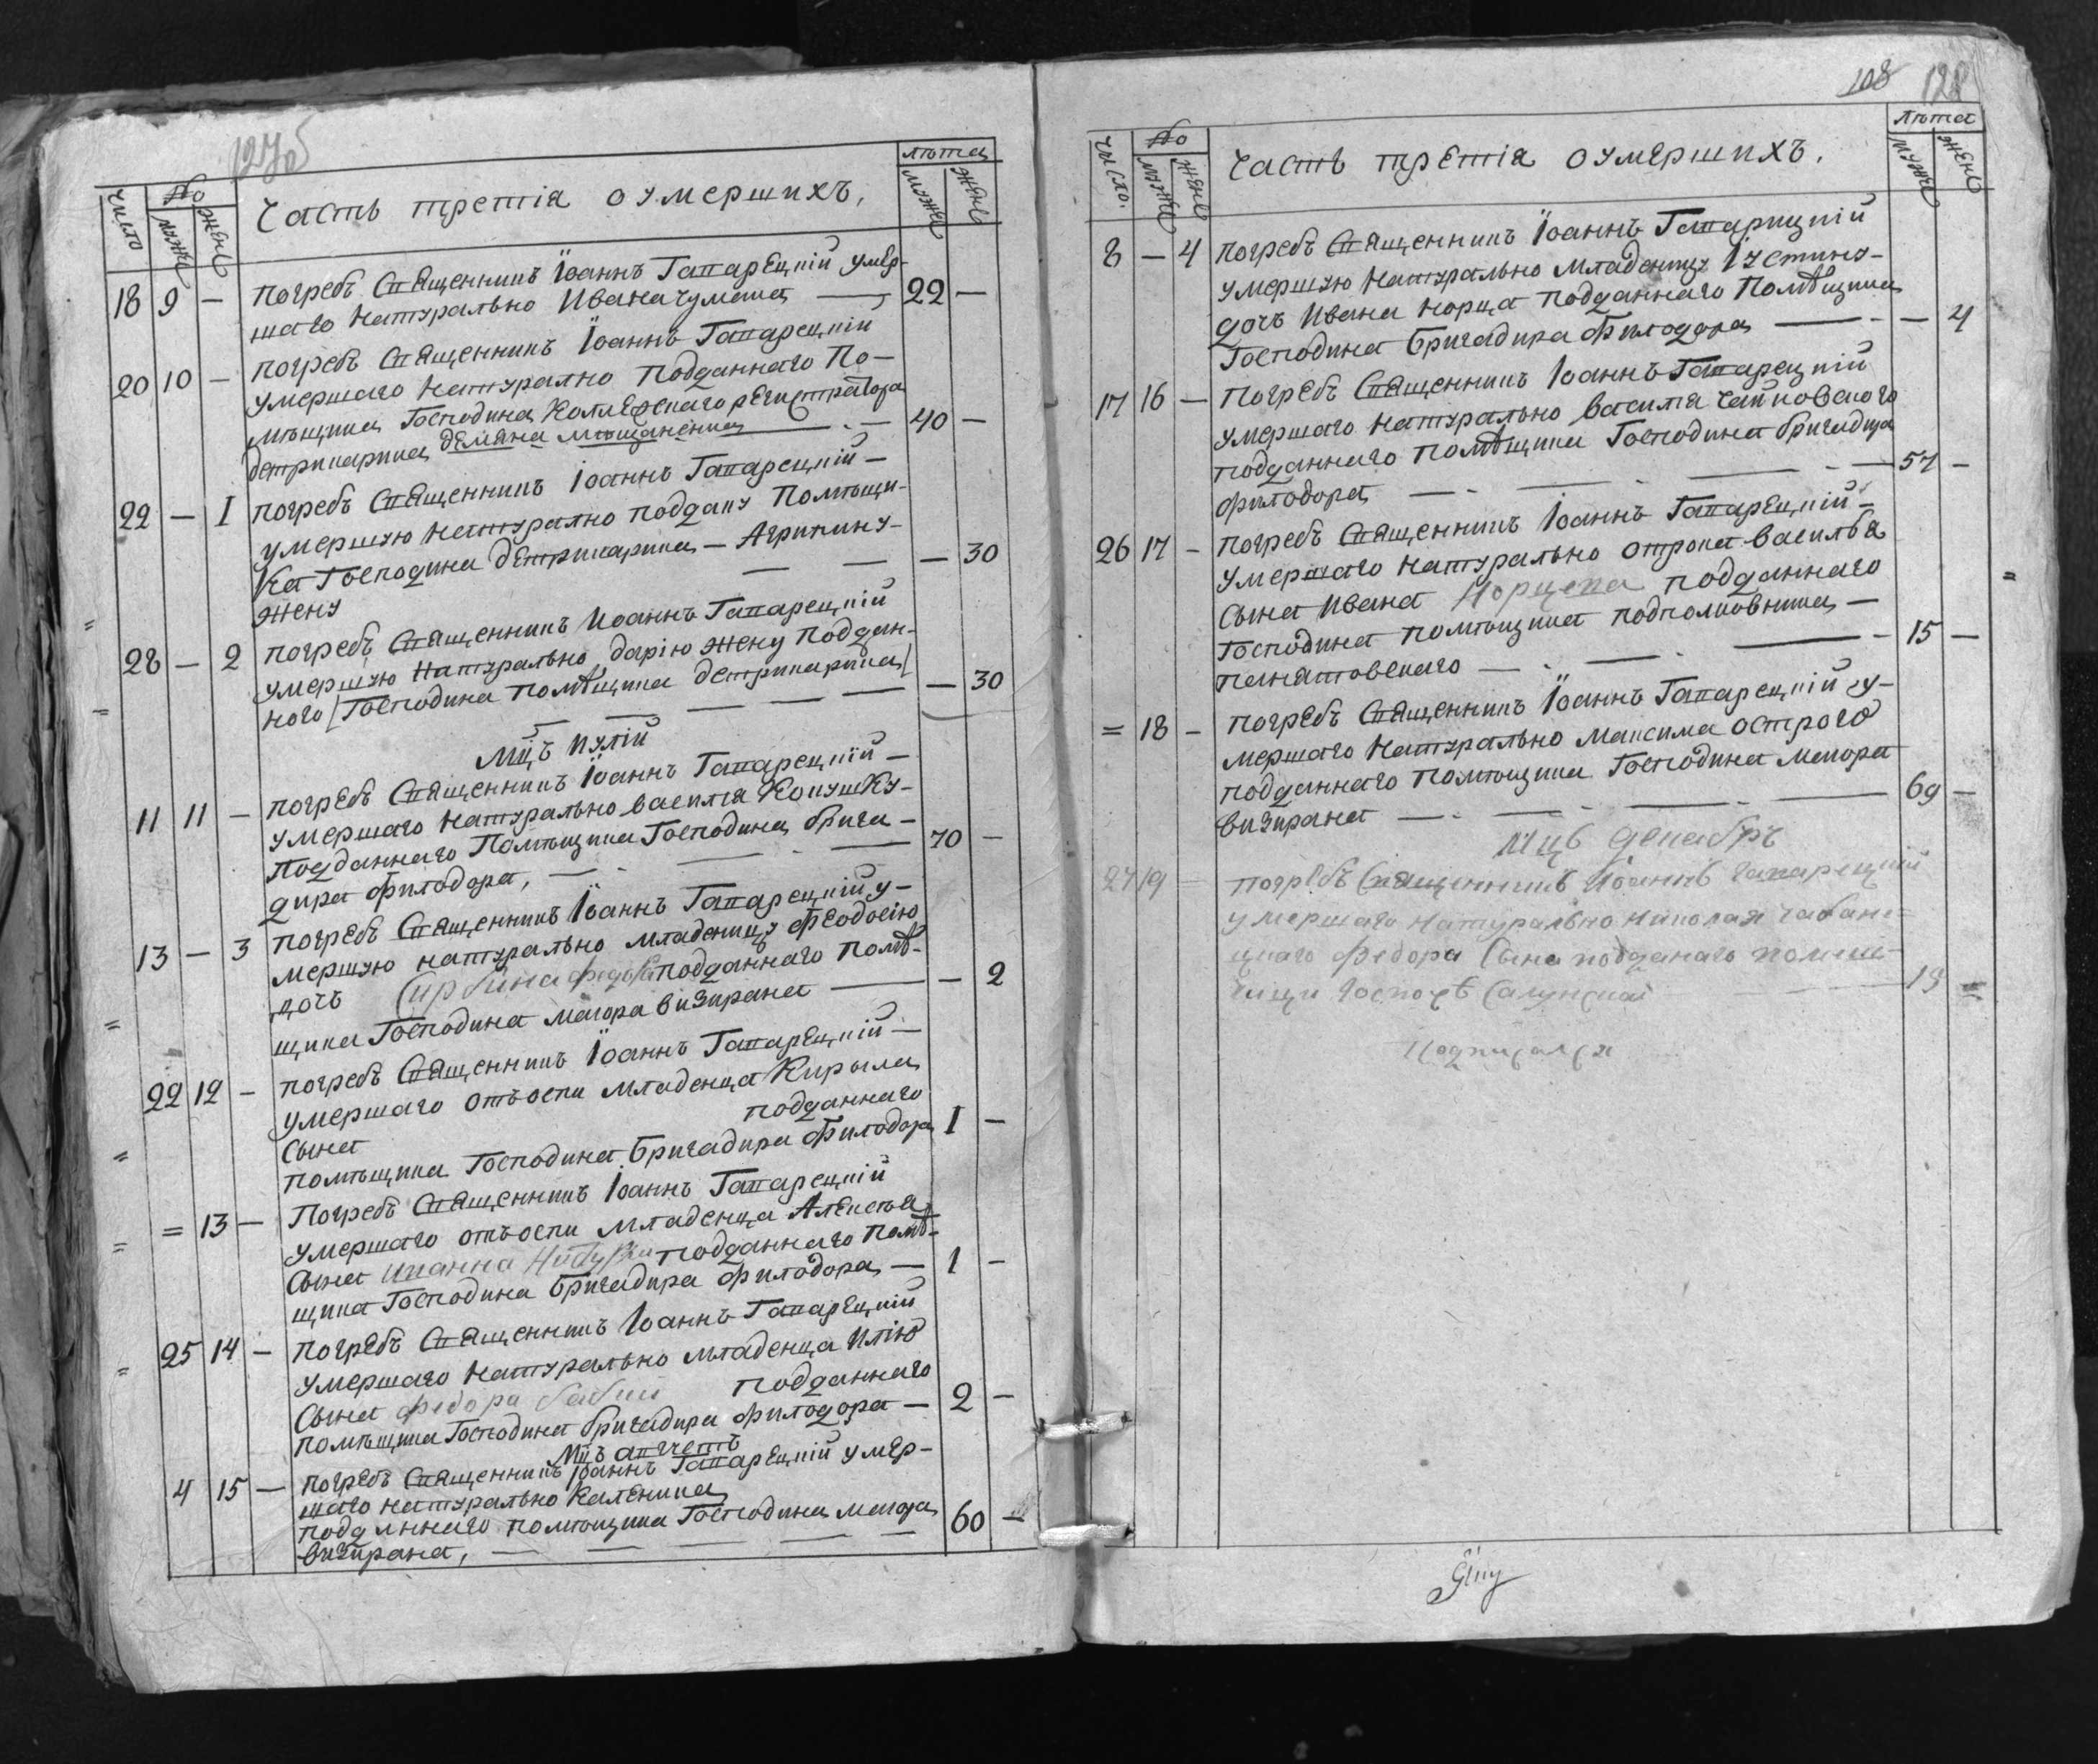 127об
число № лѣта
мужск женс мужск женс
Часть третіа о умершихъ.
18 9 — погребъ Священникъ Іоаннъ Гапарецкій умер-
шаго натурально Ивана Чумака — 22 —
20 10 — погребъ Священникъ Іоаннъ Гапарецкій
умершаго натурално подданнаго По-
мѣщика Господина Коллежскаго регистратора
детрикарика демяна мѣщаненка — 40 —
22 — 1 погребъ Священникъ Іоаннъ Гапарецкій —
умершую натурално поддану Помѣщи-
ка Господина детрикарика — Агрипину —
жену — 30
28 — 2 погребъ Священникъ Иоаннъ Гапарецкій
умершую натурально дарію жену поддан-
ного Господина помѣщика детрикарика
— 30
Мцъ иулій
11 11 — погребъ Священникъ Іоаннъ Гапарецкій —
умершаго натурально василіа Копушку —
подданнаго Помѣщика Господина брига-
дира филодора, — 70 —
13 — 3 погребъ Священникъ Іоаннъ Гапарецкій у-
мершую натурально младеницу Феодосію
дочь подданнаго помѣ-
щика Господина маіора визирана — 2
22 12 — погребъ Священникъ Іоаннъ Гапарецкій —
умершаго отъ оспи младенца Кирыла
сына подданнаго
помѣщика Господина Бригадира Филодора 1 —
= 13 — Погребъ Священникъ Іоаннъ Гапарецкій
умершаго отъ оспи младенца Алексѣа
сына подданнаго помѣ-
щика Господина Бригадира филодора — 1 —
25 14 — погребъ Священникъ Іоаннъ Гапарецкій
умершаго натурально младенца Илію
сына Федора бабий подданнаго
помѣщика Господина бригадира филодора — 2 —
Мцъ августъ
4 15 — погребъ Священникъ Іоаннъ Гапарецкій умер-
шаго натурально Каленика
подданнаго помѣщика Господина маіора
визирана, — 60 —
108 128
число. № лѣта
мужск женс мужск женс
Часть третіа о умершихъ.
8 — 4 погребъ Священникъ Іоаннъ Гапарицкій
умершую натурально младеницу Іустину —
дочь Ивана Корца подданнаго Помѣщика
Господина Бригадира Филодора — 4
17 16 — Погребъ Священникъ Іоаннъ Гапарецкій
умершаго натурально василіа Чайковскаго
подданнаго помѣщика Господина бригадира
филодора — 57 —
26 17 — погребъ Священникъ Іоаннъ Гапарецкій —
умершаго натурально отрока василѣа
сына Ивана подданнаго
Господина помѣщика подполковника —
понятовскаго — 15 —
= 18 — погребъ Священникъ Іоаннъ Гапарецкій у-
мершаго натурально максима острого
подданнаго помѣщика Господина маіора
визирана — 69 —
Мцъ декабрь
27 19 — погребъ Священникъ Іоаннъ Гапарецкій
умершаго натурально николая чабане-
цкаго Федора сына подданаго помѣ-
— 13 =
подписался